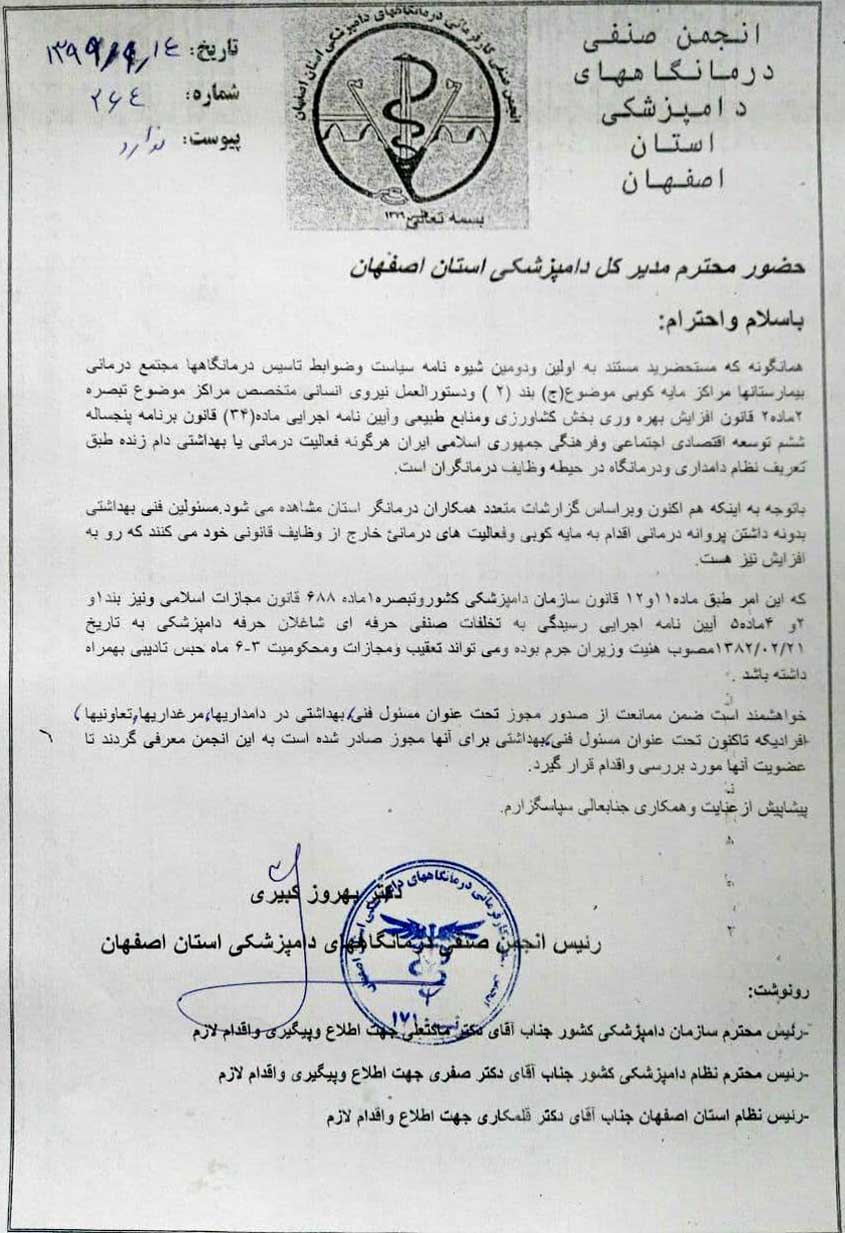 انجمن صنفی
درمانگاههای
دامپزشکی
استان
اصفهان
انجمن صنفی کارفرمائی درمانگاههای دامپزشکی استان اصفهان
تاسیس ۱۳۷۶
تاریخ: ۱۳۹۹/۹/۱٤
شماره: ۲٦٤
پیوست: ندارد
بسمه تعالی
حضور محترم مدیر کل دامپزشکی استان اصفهان
باسلام واحترام:
همانگونه که مستحضرید مستند به اولین ودومین شیوه نامه سیاست وضوابط تاسیس درمانگاهها مجتمع درمانی
بیمارستانها مراکز مایه کوبی موضوع(ج) بند (۲ ) ودستورالعمل نیروی انسانی متخصص مراکز موضوع تبصره
۲ماده۲ قانون افزایش بهره وری بخش کشاورزی ومنابع طبیعی وآیین نامه اجرایی ماده(۳۴) قانون برنامه پنجساله
ششم توسعه اقتصادی اجتماعی وفرهنگی جمهوری اسلامی ایران هرگونه فعالیت درمانی یا بهداشتی دام زنده طبق
تعریف نظام دامداری ودرمانگاه در حیطه وظایف درمانگران است.
باتوجه به اینکه هم اکنون وبراساس گزارشات متعدد همکاران درمانگر استان مشاهده می شود.مسئولین فنی بهداشتی
بدونه داشتن پروانه درمانی اقدام به مایه کوبی وفعالیت های درمانئ خارج از وظایف قانونی خود می کنند که رو به
افزایش نیز هست.
که این امر طبق ماده۱۱و۱۲ قانون سازمان دامپزشکی کشوروتبصره۱ماده ۶۸۸ قانون مجازات اسلامی ونیز بند۱و
۲و ۴ماده۵ آیین نامه اجرایی رسیدگی به تخلفات صنفی حرفه ای شاغلان حرفه دامپزشکی به تاریخ
۱۳۸۲/۰۲/۲۱مصوب هئیت وزیران جرم بوده ومی تواند تعقیب ومجازات ومحکومیت ۳-۶ ماه حبس تادیبی بهمراه
داشته باشد .
خواهشمند است ضمن ممانعت از صدور مجوز تحت عنوان مسئول فنی،بهداشتی در دامداریها،مرغداریها,تعاونیها
افرادیکه تاکنون تحت عنوان مسئول فنی،بهداشتی برای آنها مجوز صادر شده است به این انجمن معرفی گردند تا
عضویت آنها مورد بررسی واقدام قرار گیرد.
پیشاپیش ازعنایت وهمکاری جنابعالی سپاسگزارم.
دکتر بهروز کبیری
رئیس انجمن صنفی درمانگاههای دامپزشکی استان اصفهان
انجمن صنفی کارفرمائی درمانگاههای دامپزشکی استان اصفهان
ثبت ۱۷۱
رونوشت:
-رئیس محترم سازمان دامپزشکی کشور جناب آقای دکتر ماکنعلی جهت اطلاع وپیگیری واقدام لازم
-رئیس محترم نظام دامپزشکی کشور جناب آقای دکتر صفری جهت اطلاع وپیگیری واقدام لازم
-رئیس نظام استان اصفهان جناب آقای دکتر قلمکاری جهت اطلاع واقدام لازم